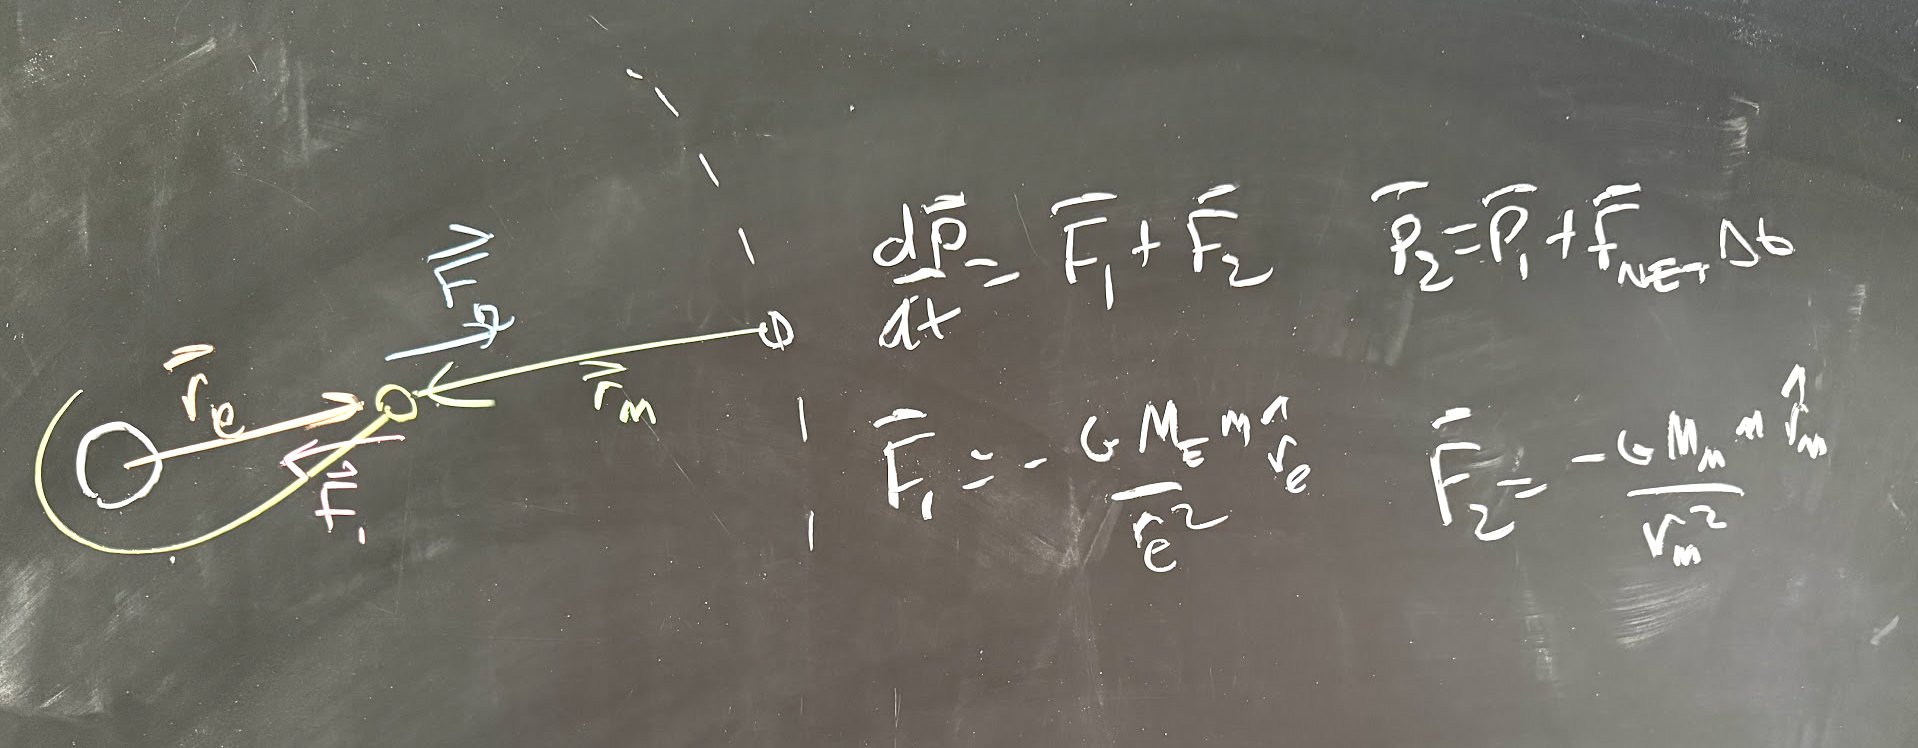 F⃗₂
r⃗ₑ
r⃗ₘ
F⃗₁
dp̄/dt = F̄₁ + F̄₂
p̄₂ = p̄₁ + F̄_NET Δt
F̄₁ = - G M_E m r̂ₑ / rₑ²
F̄₂ = - G Mₘ m r̂ₘ / rₘ²